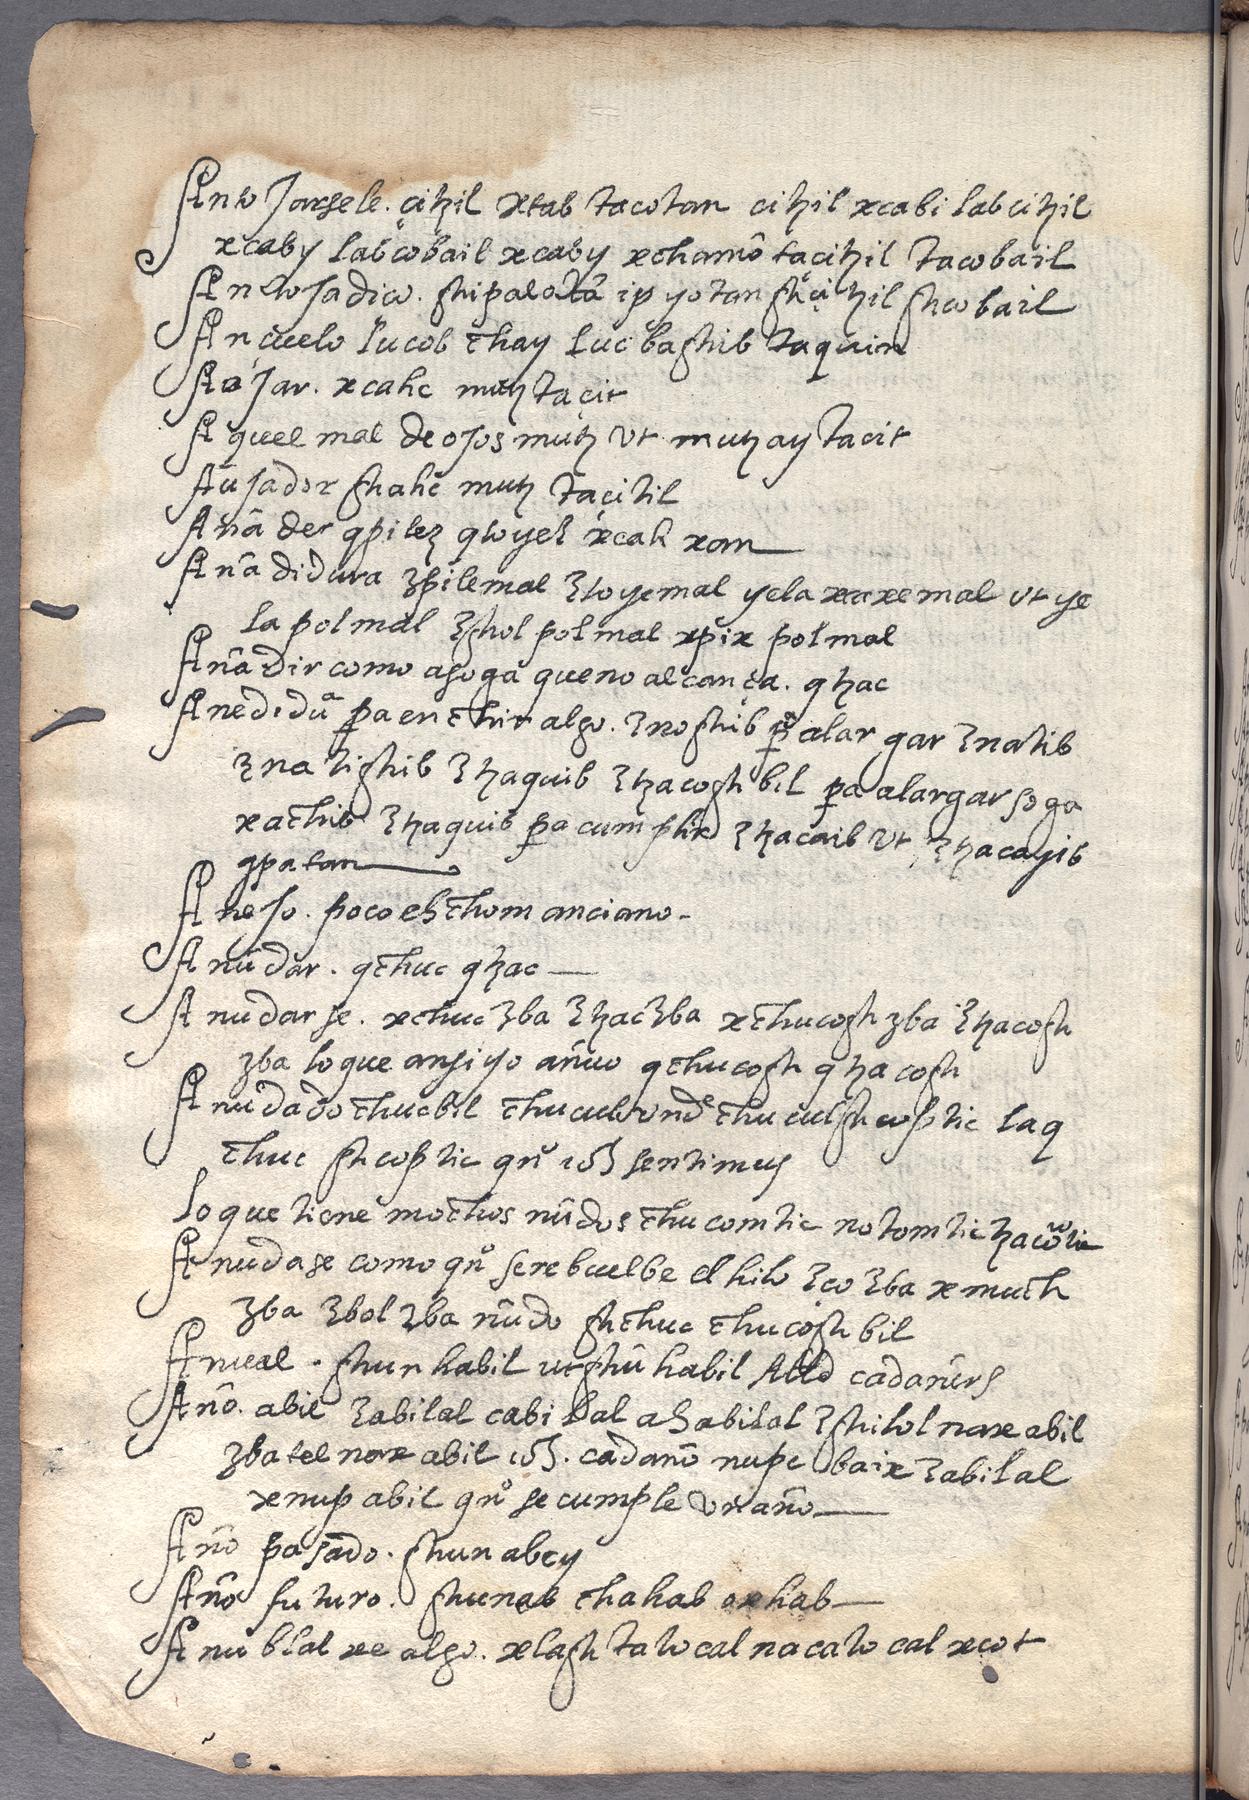 Antojarsele. çihil xtab tacotan cihil xcabi lab cihil
xcaby lab cobail xcaby xchamô tacihil tacobail
Antojadico. shipalotã ip yotan shcihil shcobail
Ancuelo lucob chay luc bashib taquin
Aojar. xcahc mutz taçit
Aquel mal de ojos mutz vt mutzay tacit
Aûjador shahc mutz taçitil
Añader qpilez qtoyez xcah xan
Añadidura ʒpilemal ʒtoyemal yela xexemal vt ye
la polmal ʒshol polmal xpix polmal
Añadir como a soga que no alcança. qhac
Añedidûa pa enchir algo. ʒnoshib pa alargar ʒnatib
ʒnatishib ʒhaquib ʒhacosh bil pa alargar soga
xachib ʒhaquib pa cumplir ʒhacaib vt ʒhacayib
qpatan
Añejo. poco ehchom anciano
Anudar. qchuc qhac
Anudarse. xchuc ʒba ʒhac ʒba xchucosh ʒba ʒhacosh
ʒba lo que ansi yo añuo qchucosh qhacosh
Anudado chucbil chuculo vnde chuculsh coptic laq
chuc shcoptic qnº ioʒ sentimus
Lo que tiene mochos nûdos chucomtic notomtic hacomtic
Anudase como qnº se rebuelbe el hilo ʒço ʒba x much
ʒba ʒbol ʒba nûdo shchuc chucosh bil
Anual. shun habil vt shû habil Alld cadañers
Año. abil ʒabilal cabilal ahabilal ʒshilol nax abil
ʒbatel nax abil ioʒ. cadaño nupe baix ʒabilal
xnup abil qnº se cumple vn año
Año pasado. shun abey
Año futuro. shunab chahab oxhab
Anublalxe algo. xlash tatocal nacatocal xcot